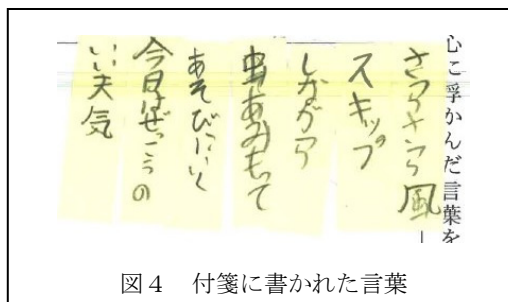 心に浮かんだ言葉を
さつらさつら風
スキップ
しながら
虫あみもって
あそびにいく
今日はぜっこうの
いい天気
図4 付箋に書かれた言葉